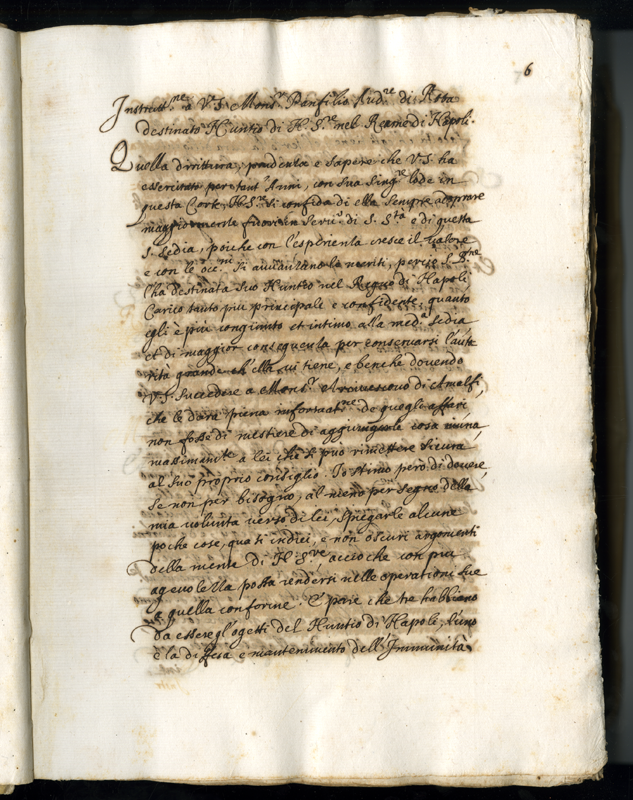 6
Instrutt.ne a V.S. Mons.r Panfilio Aud.re di Rota
destinato Nuntio di N. S.re nel Reame di Napoli.
Quella dirittura, prudenza e sapere che V.S. ha
esercitato per tant' Anni, con sua sing.re lode in
questa Corte, N. S.re si confida di ella sempre adoprare
maggiormente fuori in Serv.o di S. S.tà e di questa
S. Sedia, poiche con l'esperienza cresce il valore
e con le occ.ni si aumentano li meriti, percio S. B.ne
l'ha destinata suo Nuntio nel Regno di Napoli
Carico tanto piu principale e confidente, quanto
egli è piu congiunto et intimo alla med.a Sedia
et di maggior conseguenza per conservarsi l'auto
rità grande ch'ella vi tiene, e benche dovendo
V.S. succedere a Mons.r Arcivescovo di Amalfi,
che le darà piena informat.ne de quegli affari,
non fosse di mestiere di aggiungerle cosa niuna,
massimam.te a lei che si può rimettere sicura
al suo proprio consiglio. Io stimo però di dovere,
se non per bisogno, al meno per segno della
mia volontà verso di lei, spiegarle alcune
poche cose, quasi indici, e non oscuri argomenti
della mente di N. S.re, accioche con piu
agevolezza possa rendersi nelle operationi sue
a quella conforme. E pare che tre habbiano
da essere gl'ogetti del Nuntio di Napoli, l'uno
è la difesa e mantenimento dell'Immunità